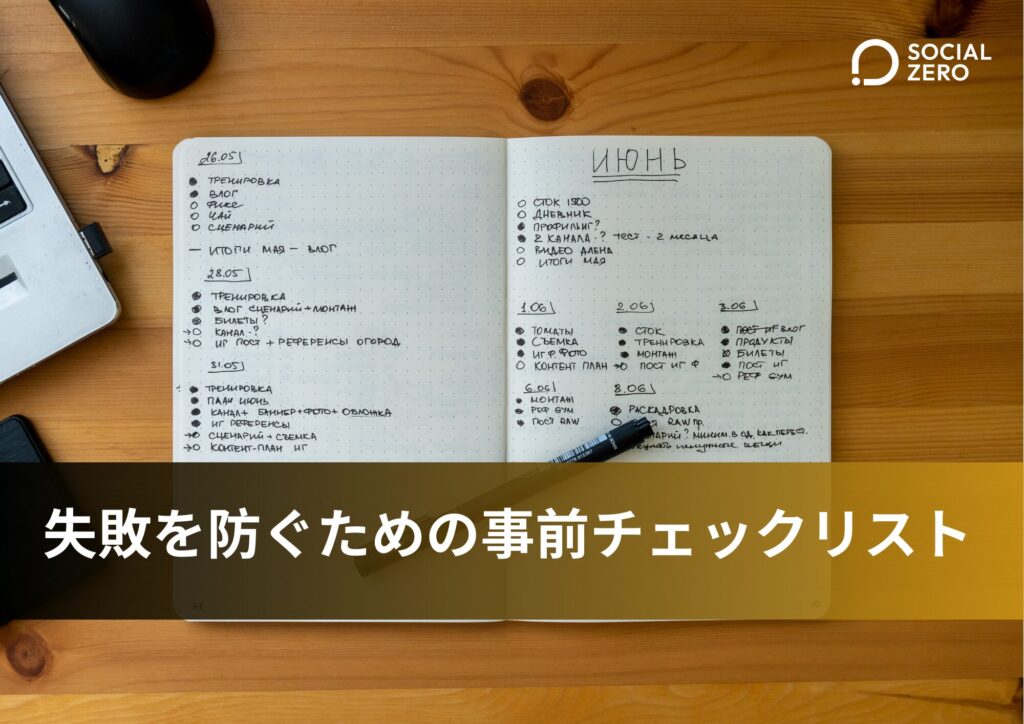 SOCIAL
ZERO
26.05
ТРЕНИРОВКА
ВЛОГ
ФИКС
ЧАЙ
СЦЕНАРИЙ
— ИТОГИ МАЯ — ВЛОГ
28.05
ТРЕНИРОВКА
ВЛОГ СЦЕНАРИЙ + МОНТАЖ
БИЛЕТЫ?
КАНАЛ - ?
ИГ ПОСТ + РЕФЕРЕНСЫ ОГОРОД
31.05
ТРЕНИРОВКА
ПЛАН ИЮНЬ
КАНАЛ + БАННЕР + ФОТО + ОБЛОЖКА
ИГ РЕФЕРЕНСЫ
СЦЕНАРИЙ + СЪЕМКА
КОНТЕНТ-ПЛАН ИГ
ИЮНЬ
СТОК 1500
ДНЕВНИК
ПРОФИЛИНГ?
2 КАНАЛА - ? ТЕСТ - 2 МЕСЯЦА
ВИДЕО АЛЕНА
ИТОГИ МАЯ
1.06
ТОМАТЫ
СЪЕМКА
ИГ Ф. ФОТО
КОНТЕНТ ПЛАН
2.06
СТОК
ТРЕНИРОВКА
МОНТАЖ
ПОСТ ИГ Ф
3.06
ПОСТ ИГ ВЛОГ
ПРОДУКТЫ
БИЛЕТЫ
ПОСТ ИГ
РЕФ GYM
6.06
МОНТАЖ
РЕФ GYM
ПОСТ RAW
8.06
РАСКАДРОВКА
RAW ПР.
МИНИМ. В ОД. КАК ПЕРЕСТ.
ненужные вещи
失敗を防ぐための事前チェックリスト